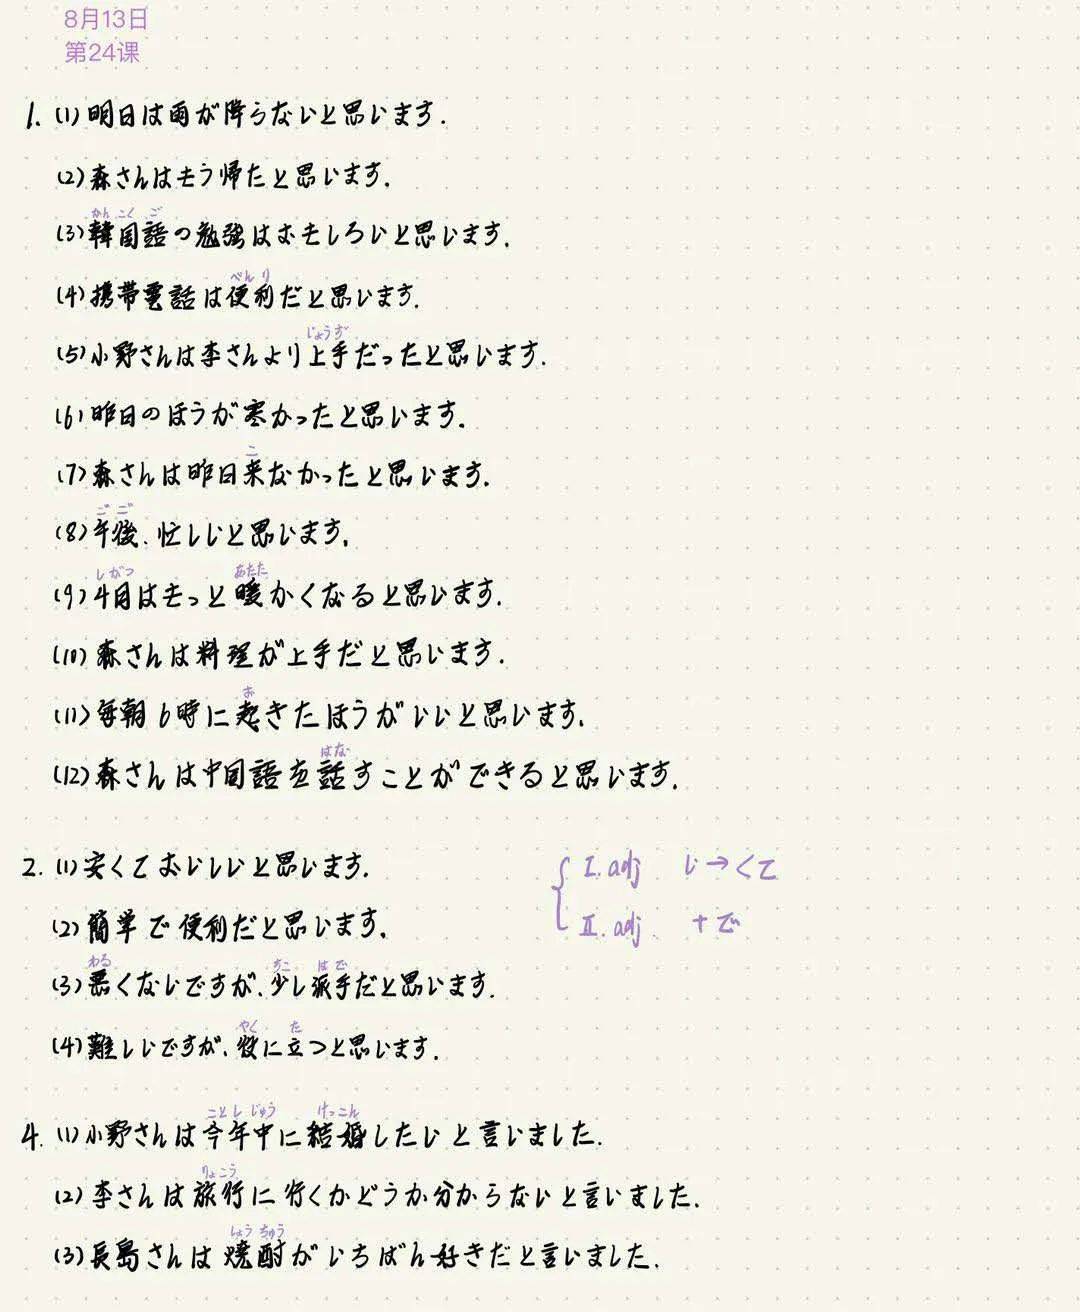 8月13日
第24课
1. (1) 明日は雨が降らないと思います.
(2) 森さんはもう帰たと思います.
かん こく ご
(3) 韓国語の勉強はおもしろいと思います.
べん り
(4) 携帯電話は便利だと思います.
じょうず
(5) 小野さんは李さんより上手だったと思います.
(6) 昨日のほうが寒かったと思います.
こ
(7) 森さんは昨日来なかったと思います.
ごご
(8) 午後、忙しいと思います.
しがつ あたた
(9) 4月はもっと暖かくなると思います.
(10) 森さんは料理が上手だと思います.
お
(11) 毎朝6時に起きたほうがいいと思います.
はな
(12) 森さんは中国語を話すことができると思います.
2. (1) 安くておいしいと思います. { I. adj い→くて
(2) 簡単で便利だと思います. II. adj. +で
わる すこ はで
(3) 悪くないですが、少し派手だと思います.
やく た
(4) 難しいですが、役に立つと思います.
ことし じゅう けっこん
4. (1) 小野さんは今年中に結婚したいと言いました.
りょこう
(2) 李さんは旅行に行くかどうか分からないと言いました.
しょう ちゅう
(3) 長島さんは焼酎がいちばん好きだと言いました.